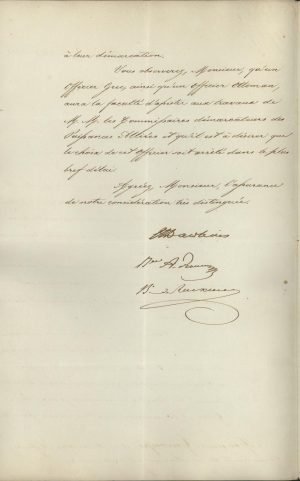 à leur démarcation.
Vous observerez, Monsieur, qu'un
Officier Grec, ainsi qu'un Officier Ottoman,
aura la faculté d'assister aux travaux de
M. M. les Commissaires démarcateurs des
Puissances Alliées et qu'il est à désirer que
le choix de cet Officier soit arrêté dans le plus
bref délai.
Agréez, Monsieur, l'assurance
de notre considération très distinguée.
Dawkins
Bon A. Rouen
Bn Ruckman